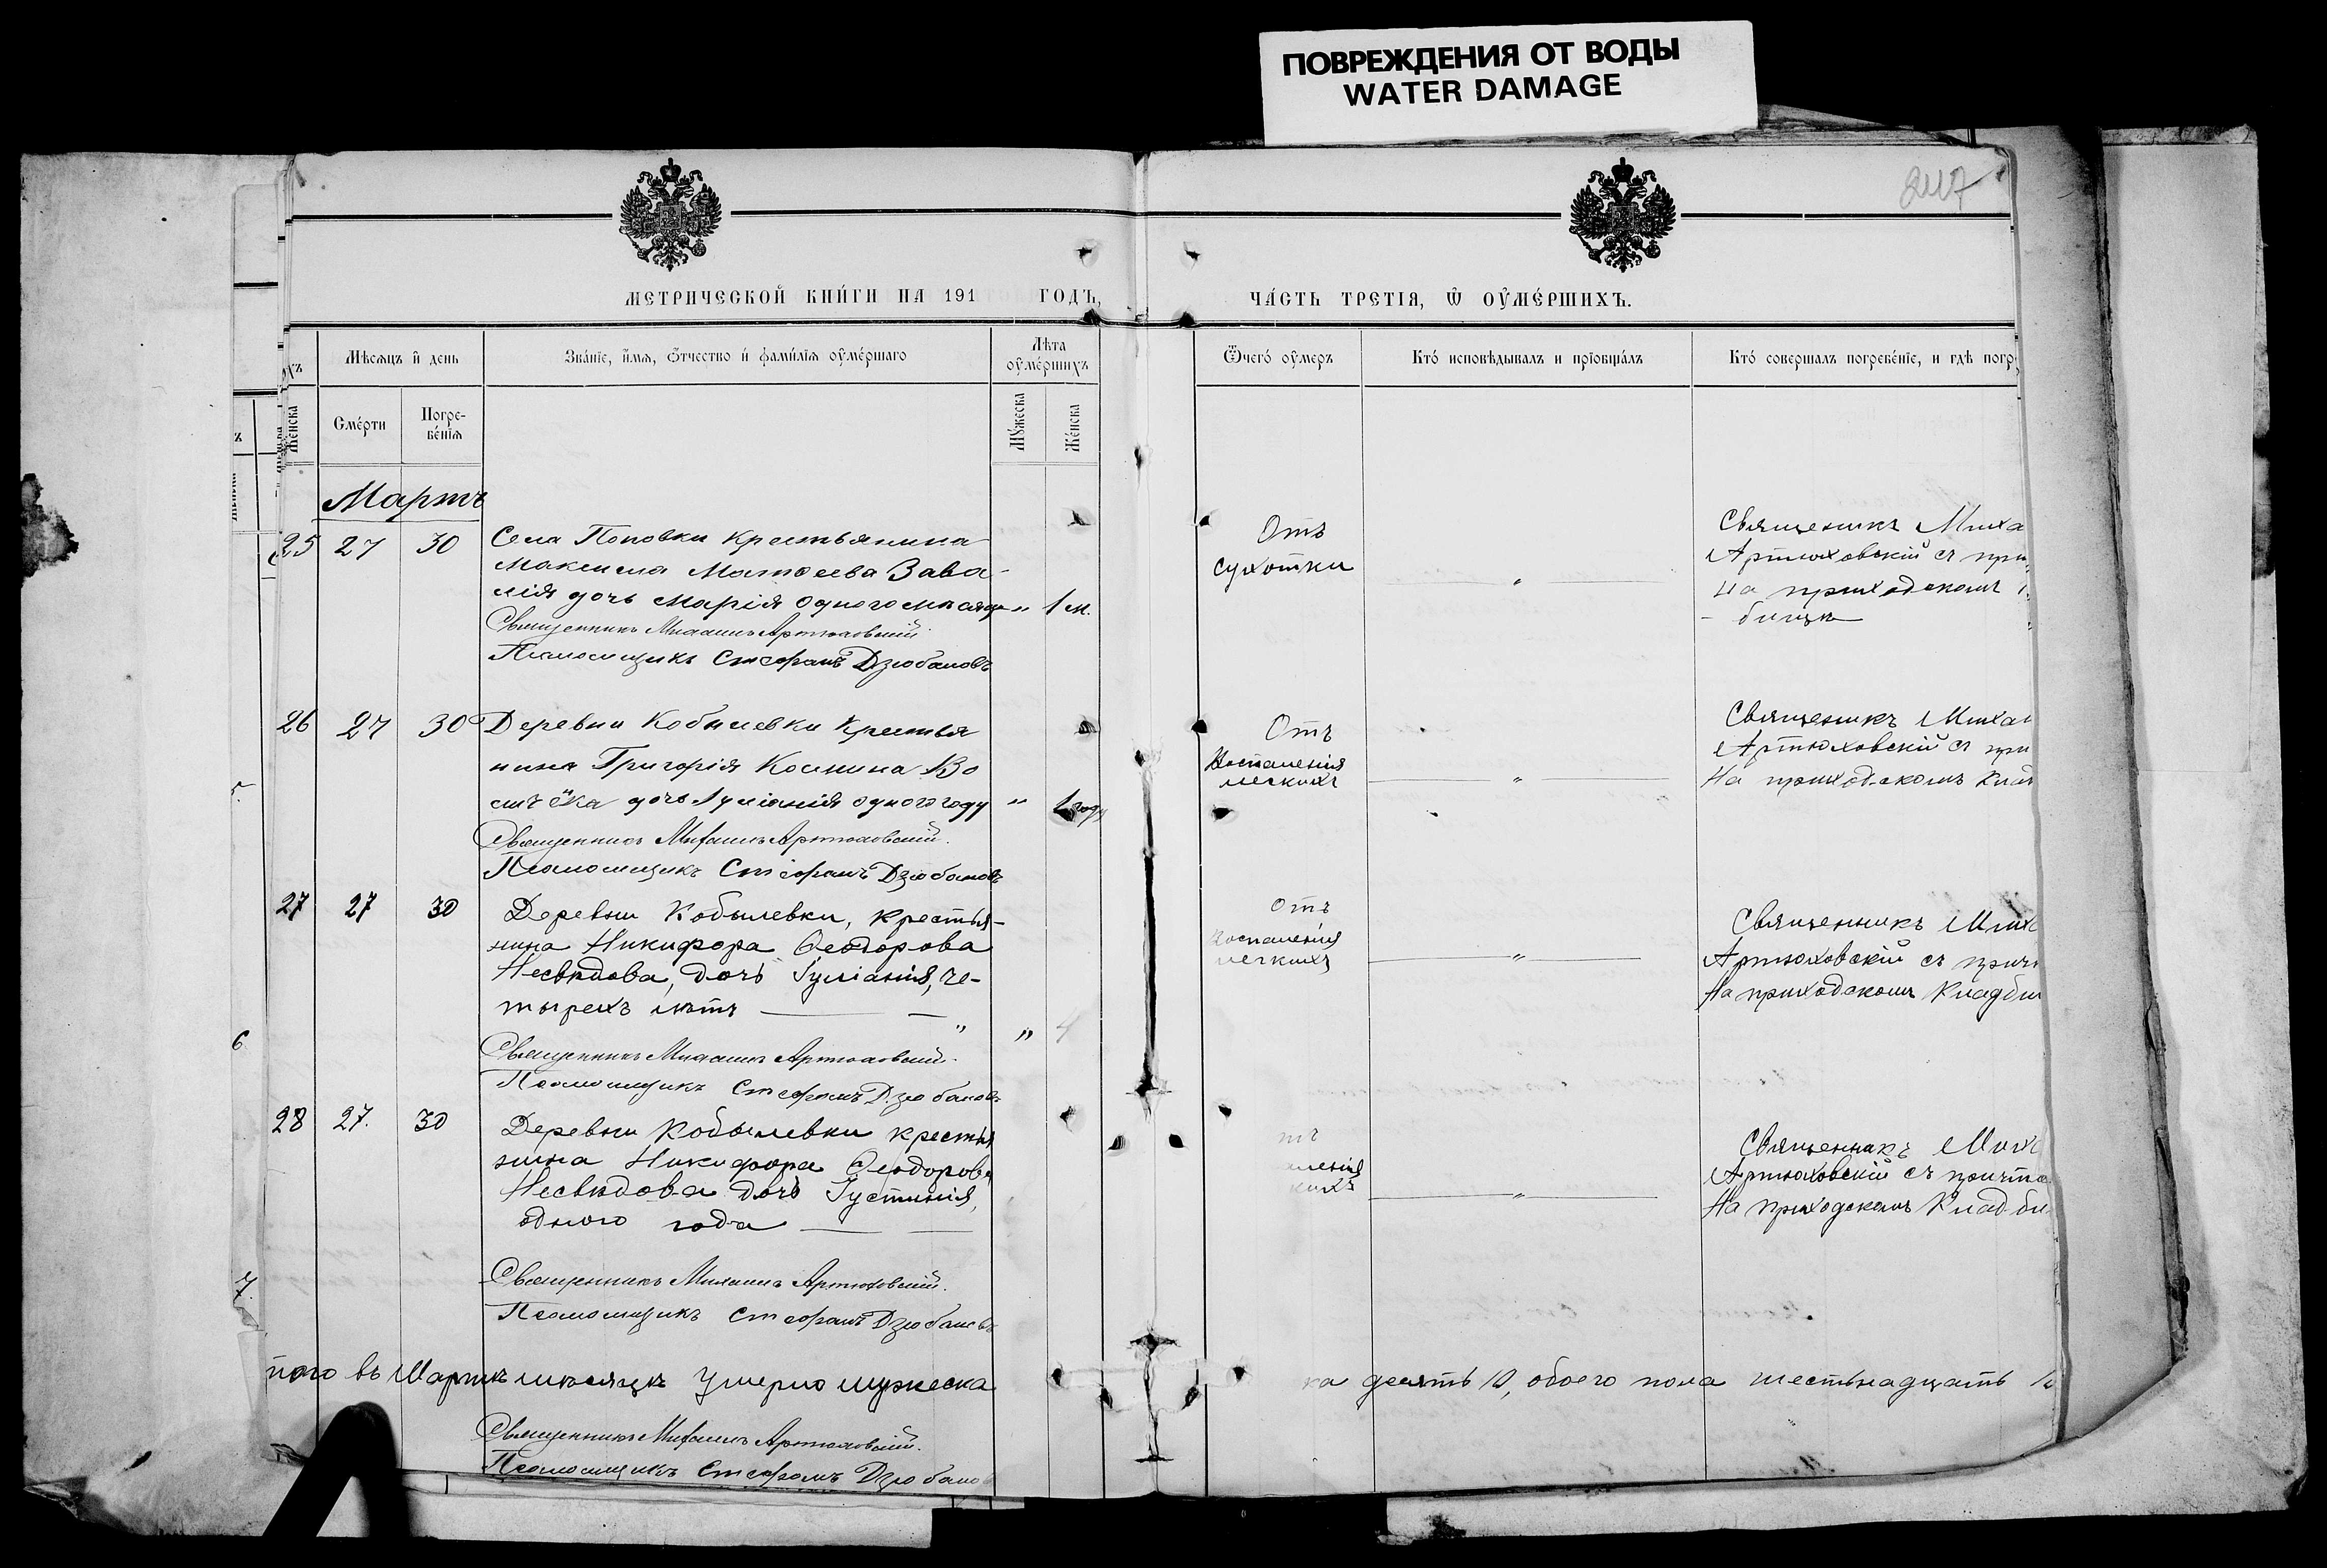 ПОВРЕЖДЕНИЯ ОТ ВОДЫ
WATER DAMAGE
247
МЕТРИЧЕСКОЙ КНИ́ГИ НА 191 ГОДЪ,
ЧА́СТЬ ТРЕТІЯ, Ѿ ОУ҆МЕ́РШИХЪ.
Мѣсяцъ и҆ день
Зва́ніе, и҆́мя, ѻ҆́тчество и҆ фами́лія оу҆ме́ршаго
Лѣта оу҆ме́ршихъ
Же́нска
Сме́рти
Погре-
бе́нія
Му́жеска
Же́нска
Ѿчегѡ̀ оу҆меръ
Кто̀ исповѣдывалъ и҆ прїобща́лъ
Кто̀ совершалъ погребе́ніе, и҆ гдѣ погр
Мартъ
25 27 30 Села Поповки крестьянина
Максима Матѳеева Зава-
лія дочь Марія одного мѣсяца " 1 м.
Священникъ Михаилъ Артюховскій
Псаломщикъ Стефанъ Дзюбановъ
Отъ
сухотки
"
Священикъ Миха
Артюховскій съ при
на приходскомъ
- бищѣ
26 27 30 Деревни Кобылевки крестья
нина Григорія Космина Во
дочь Іуліанія одного году " 1 году
Священникъ Михаилъ Артюховскій.
Псаломщикъ Стефанъ Дзюбановъ
Отъ
Воспаленія
легкихъ
"
Священикъ Михаи
Артюховскій съ при
На приходскомъ Клад
27 27 30 Деревни Кобылевки, крестья-
нина Никифора Ѳеодорова
Несвѣдова, дочь Іуліанія, че-
тырехъ лѣтъ " " 4
Священникъ Михаилъ Артюховскій.
Псаломщикъ Стефанъ Дзюбановъ
Отъ
Воспаленія
легкихъ
"
Священникъ Миха
Артюховскій съ прич
На приходскомъ Кладби
28 27. 30 Деревни Кобылевки крестья
нина Никифора Ѳеодорова
Несвѣдова дочь Іустинія,
одного года
Священникъ Михаилъ Артюховскій.
Псаломщикъ Стефанъ Дзюбановъ
тъ
аленія
кихъ
"
Священникъ Миха
Артюховскій съ причто
На приходскомъ Кладби
того въ Мартѣ мѣсяцѣ умерло мужеска
ка десять 10, обоего пола шестьнадцать 1
Священникъ Михаилъ Артюховскій.
Псаломщикъ Стефанъ Дзюбанов
6
7.